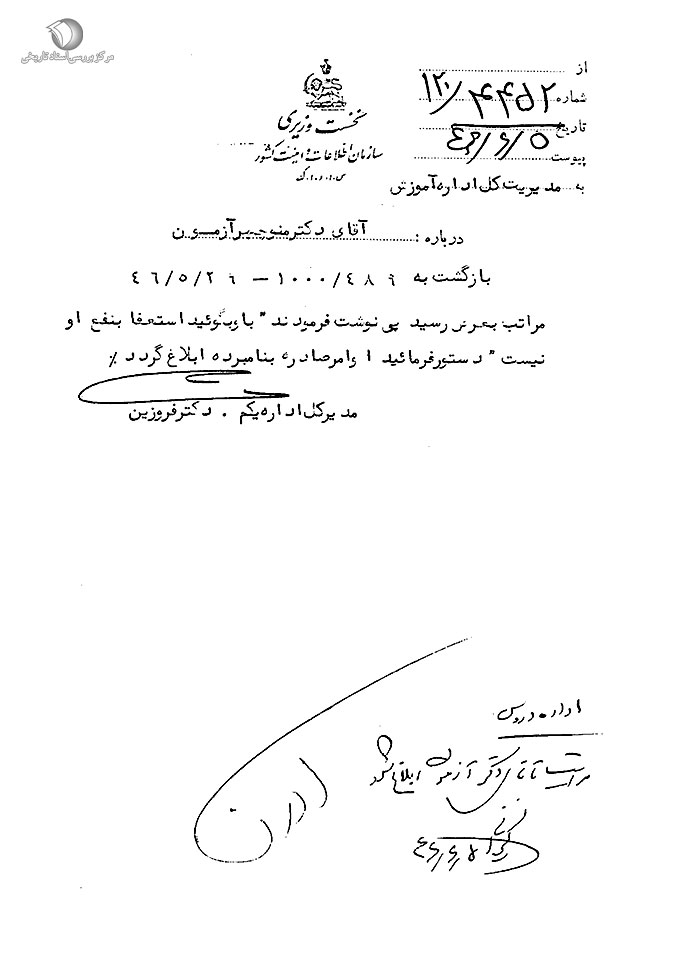 مرکز بررسی اسناد تاریخی
از
شماره ۱۲۰/۴۴۵۲
تاریخ ۴۶/۶/۵
پیوست
نخست وزیری
سازمان اطلاعات و امنیت کشور
س.ا.و.ا.ک
به مدیریت کل اداره آموزش
درباره : آقای دکتر منوچهر آزمون
بازگشت به ۱۰۰۰/۴۸۹ – ۴۶/۵/۲۹
مراتب بعرض رسید پی نوشت فرمودند " باو بگوئید استعفا بنفع او
نیست " دستور فرمائید اوامر صادره بنامبرده ابلاغ گردد ٪
مدیر کل اداره یکم . دکتر فروزین
اداره دروس
مراتب به آقای دکتر آزمون ابلاغ شود